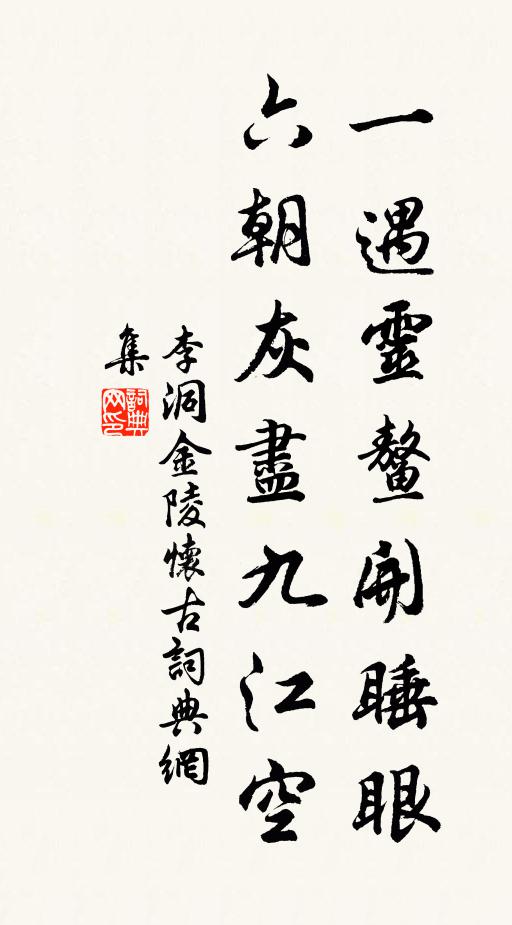 一遇靈鰲開睡眼
六朝灰盡九江空
李洞金陵懷古詞典網
集
詞典
网印